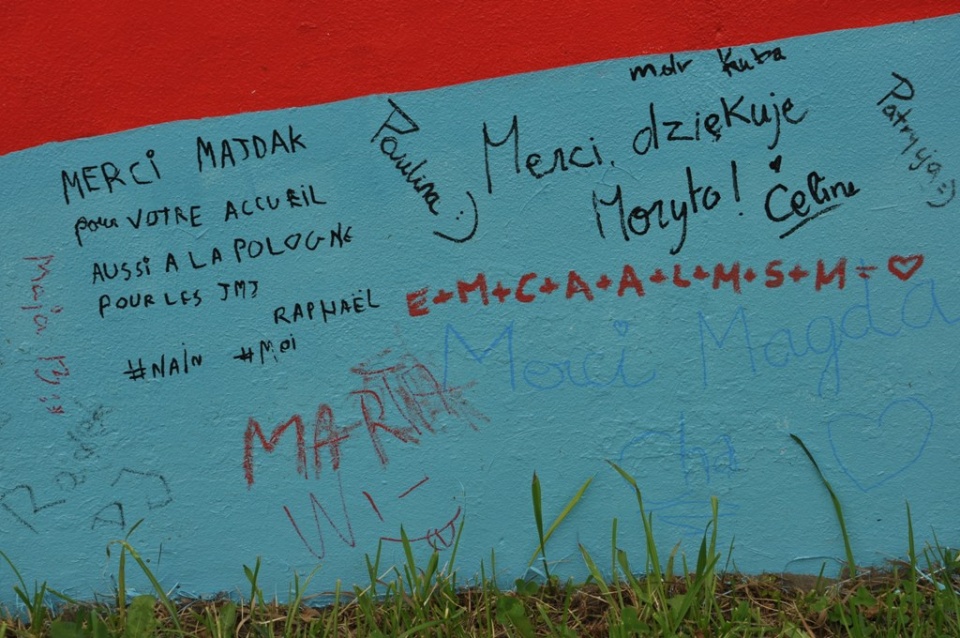 mdr Kuba
MERCI MAJDAK
pour VOTRE ACCUEIL
AUSSI A LA POLOGNE
POUR LES JMJ
RAPHAËL
#NAIN #MOI
Paulina :)
Merci, dziękuje
Moryto! Céline
Patrycja :)
E+M+C+A+A+L+M+S+M=♥
Maja
Merci Magda
MARTA